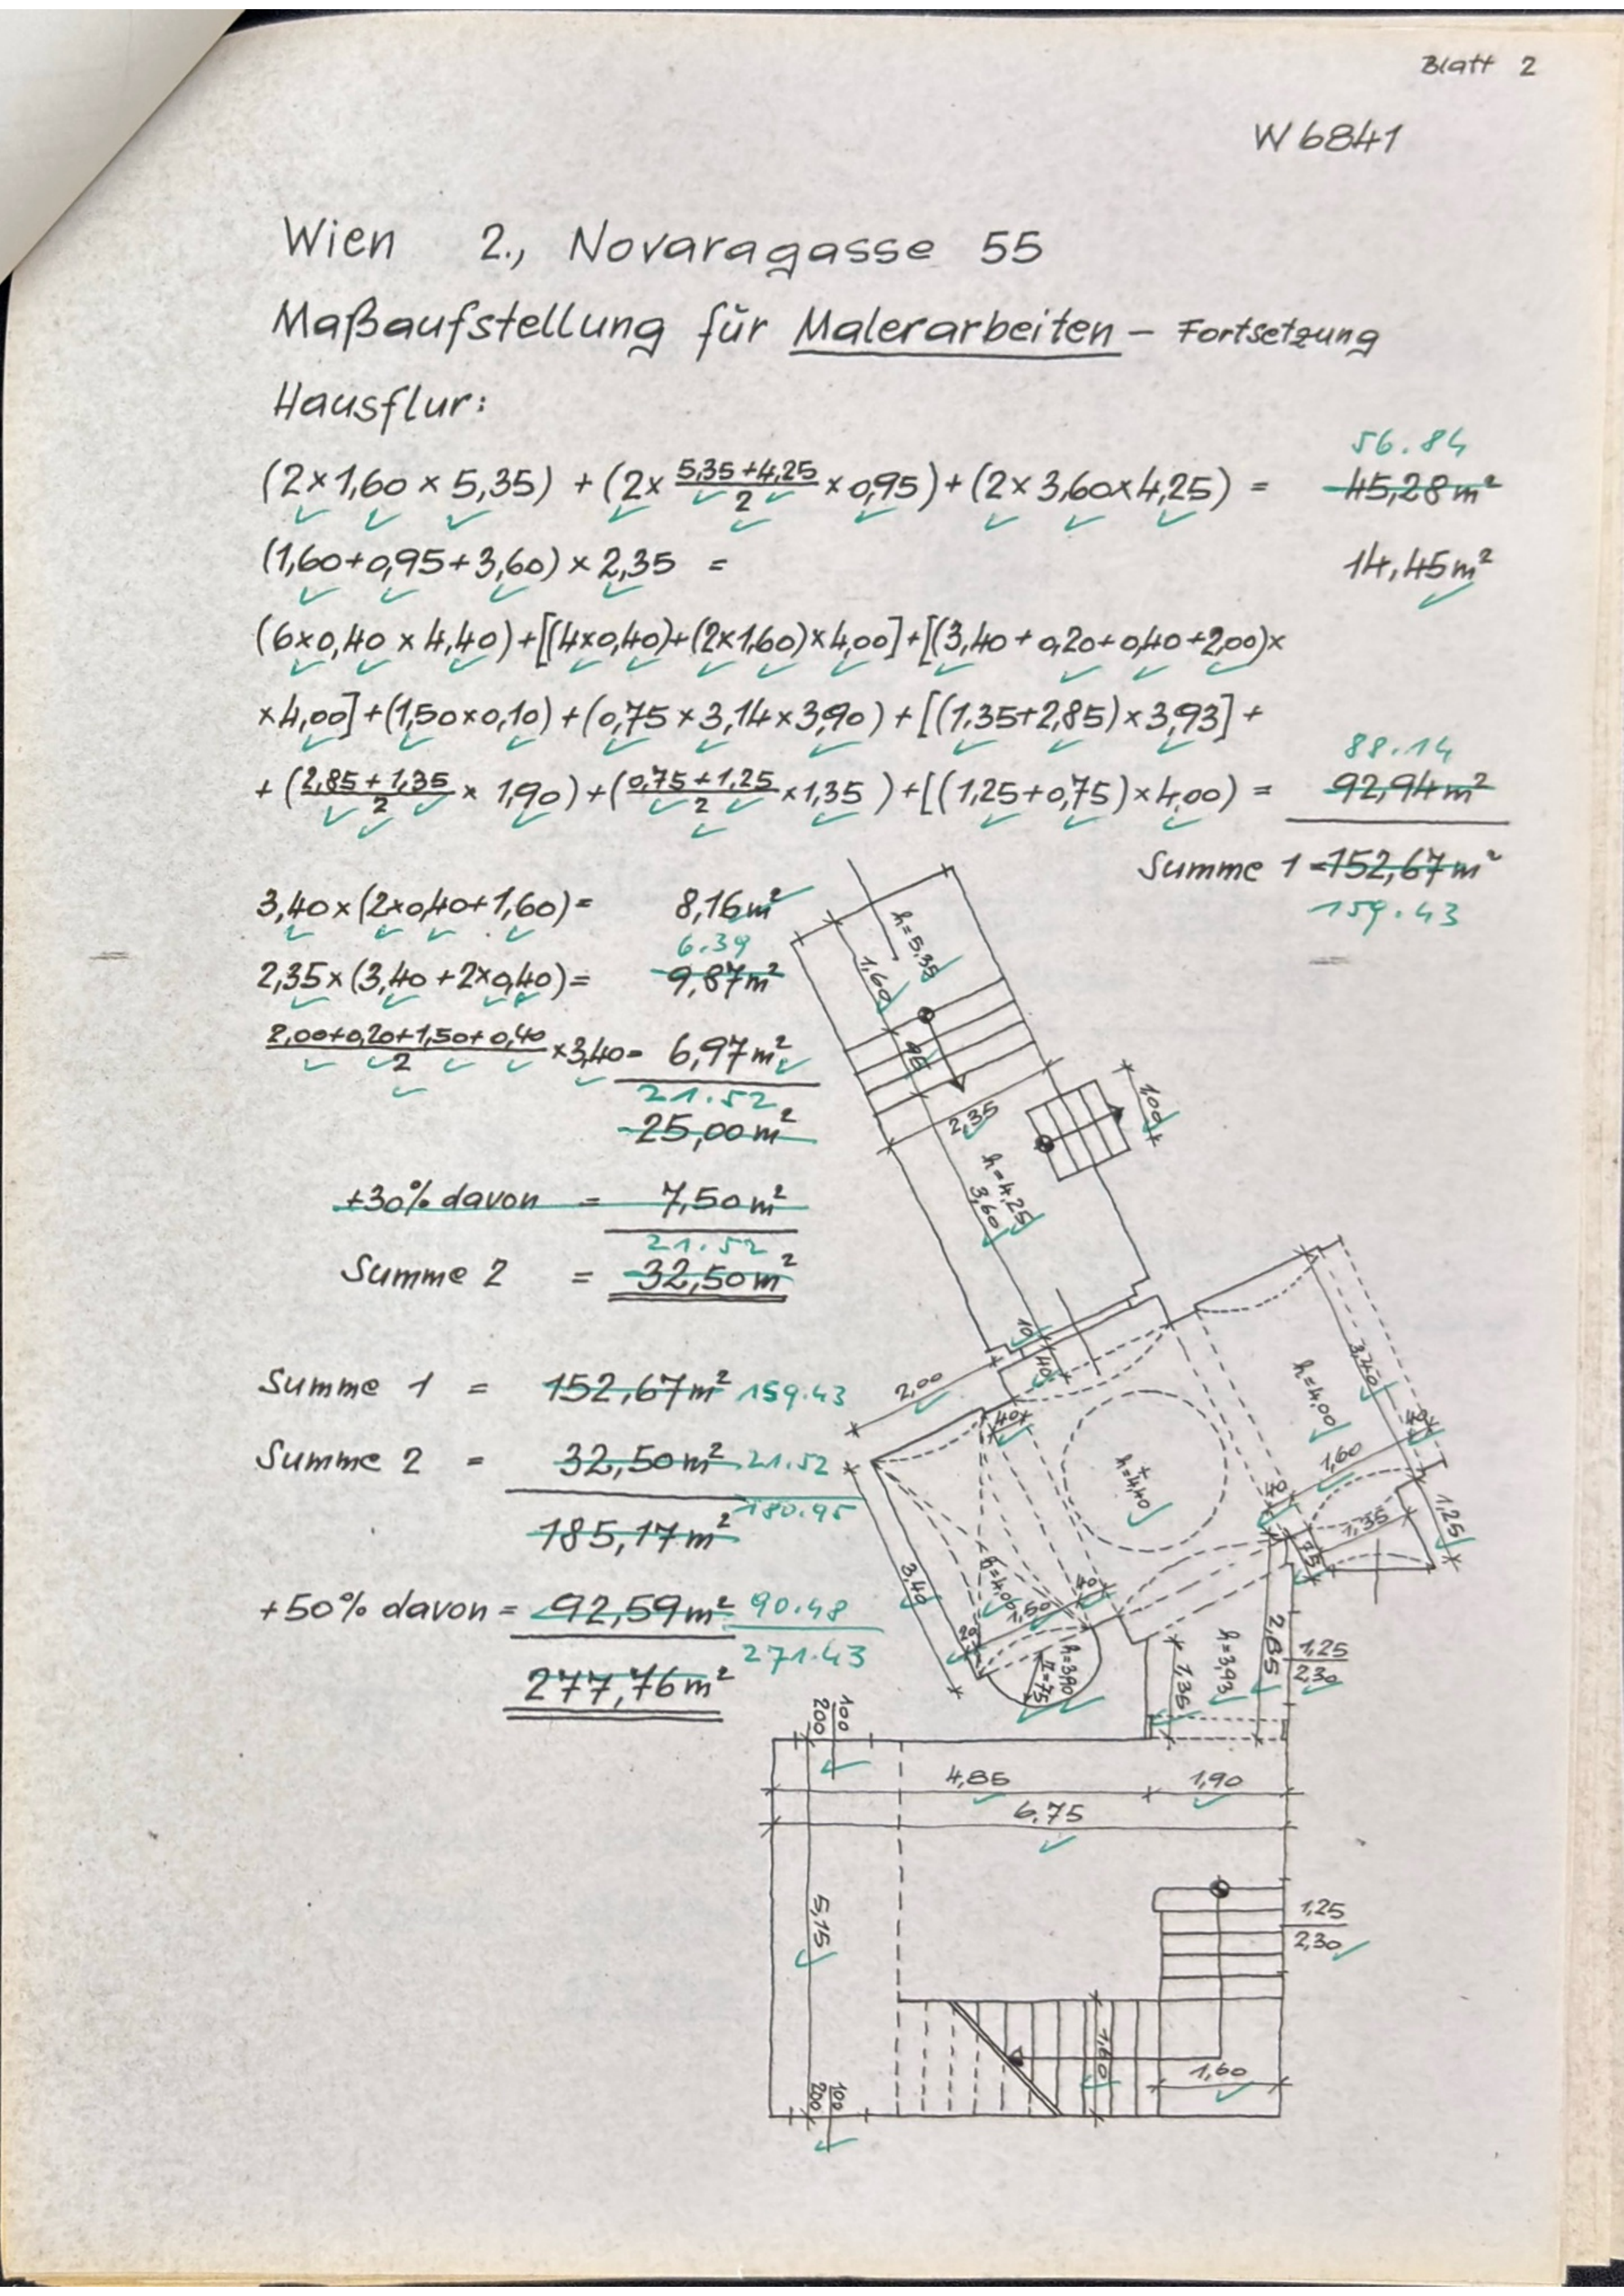 Blatt 2
W 6841
Wien 2., Novaragasse 55
Maßaufstellung für Malerarbeiten – Fortsetzung
Hausflur:
56.84
(2×1,60 × 5,35) + (2× (5,35+4,25)/2 × 0,95) + (2× 3,60×4,25) = 45,28 m²
(1,60+0,95+3,60) × 2,35 = 14,45 m²
(6×0,40 × 4,40) + [(4×0,40)+(2×1,60)×4,00] + [(3,40 + 0,20+0,40+2,00)×
×4,00] + (1,50×0,10) + (0,75 × 3,14×3,90) + [(1,35+2,85)×3,93] +
88.14
+ ((2,85+1,35)/2 × 1,90) + ((0,75+1,25)/2 ×1,35) + [(1,25+0,75)×4,00) = 92,94 m²
Summe 1 = 152,67 m²
159.43
3,40×(2×0,40+1,60) = 8,16 m²
6.39
2,35×(3,40+2×0,40) = 9,87 m²
(2,00+0,20+1,50+0,40)/2 ×3,40 = 6,97 m²
21.52
25,00 m²
+30% davon = 7,50 m²
21.52
Summe 2 = 32,50 m²
Summe 1 = 152,67 m² 159.43
Summe 2 = 32,50 m² 21.52
185,17 m² 180.95
+50% davon = 92,59 m² 90.48
277,76 m² 271.43
h=5,35
1,60
95
2,35
1,00
h=4,25
3,60
10
40
2,00
40
3,40
h=4,00
40
1,60
h=4,40
40
1,35
1,25
75
3,40
h=4,00
1,50
40
20
h=3,90
r=75
1,35
h=3,93
2,85
1,25
2,30
100
200
4,85
1,90
6,75
5,15
1,25
2,30
1,60
1,60
100
200